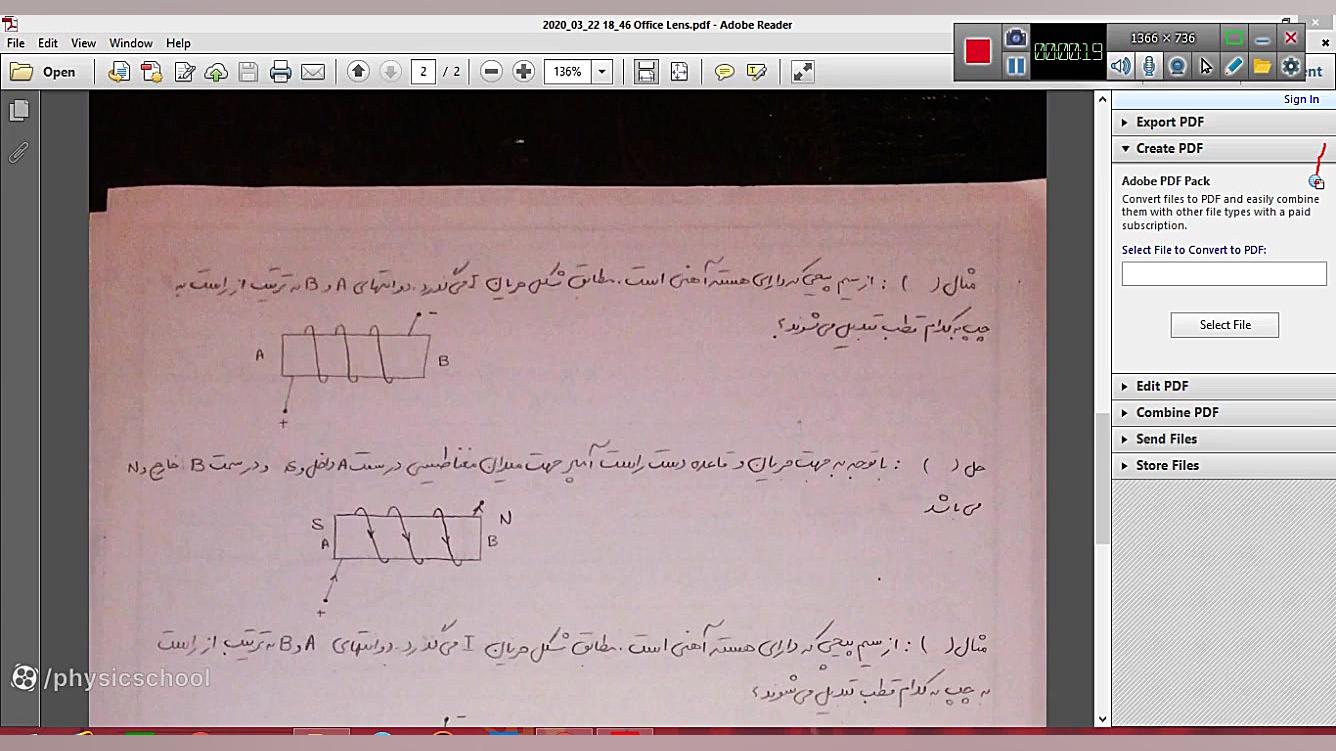 2020_03_22 18_46 Office Lens.pdf - Adobe Reader
File Edit View Window Help
1366 × 736
00:00:19
Open
2 / 2
136%
Sign In
Export PDF
Create PDF
Adobe PDF Pack
Convert files to PDF and easily combine
them with other file types with a paid
subscription.
Select File to Convert to PDF:
Select File
Edit PDF
Combine PDF
Send Files
Store Files
مثال ( ) : از سیم پیچی که دارای هسته آهنی است . مطابق شکل جریان I می گذرد . دو انتهای A و B به ترتیب از راست به
چپ به کدام قطب تبدیل می شوند ؟
-
A
B
+
حل ( ) : با توجه به جهت جریان و قاعده دست راست آمپر جهت میدان مغناطیسی در سمت A داخل و S و در سمت B خارج و N
می باشد
S
N
A
B
+
مثال ( ) : از سیم پیچی که دارای هسته آهنی است . مطابق شکل جریان I می گذرد . دو انتهای A و B به ترتیب از راست
به چپ به کدام قطب تبدیل می شوند ؟
-
/physicschool